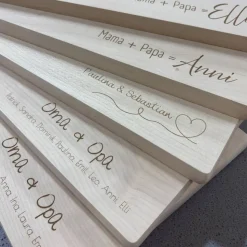 Ell
Mama + Papa =
Anni
Paulina & Sebastian
Oma & Opa
Sandra, Dominik, Paulina, Emil, Leo, Anni, Elli
Oma & Opa
Anna, Ina, Laura,